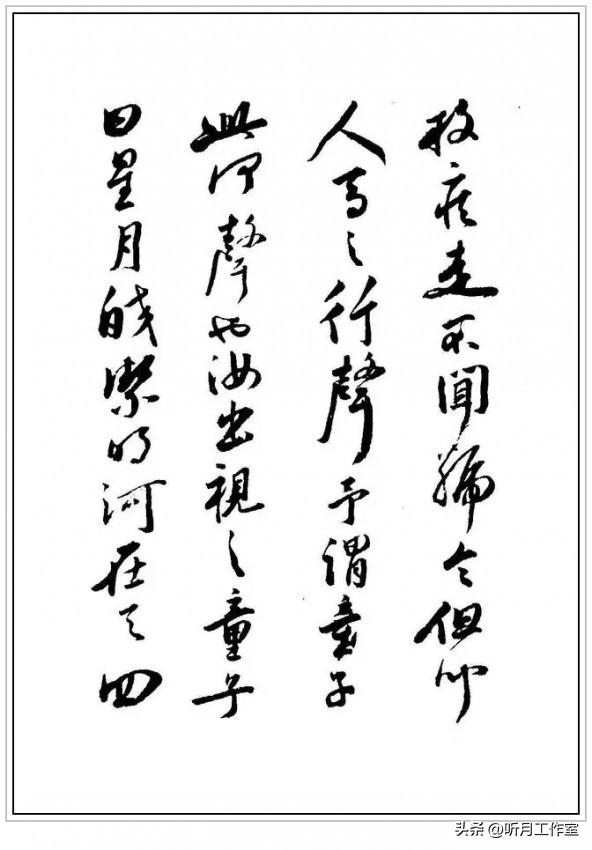 枚疾走不聞號令但聞
人馬之行聲予謂童子
此何聲也汝出視之童子
曰星月皎潔明河在天四
头条 @听月工作室